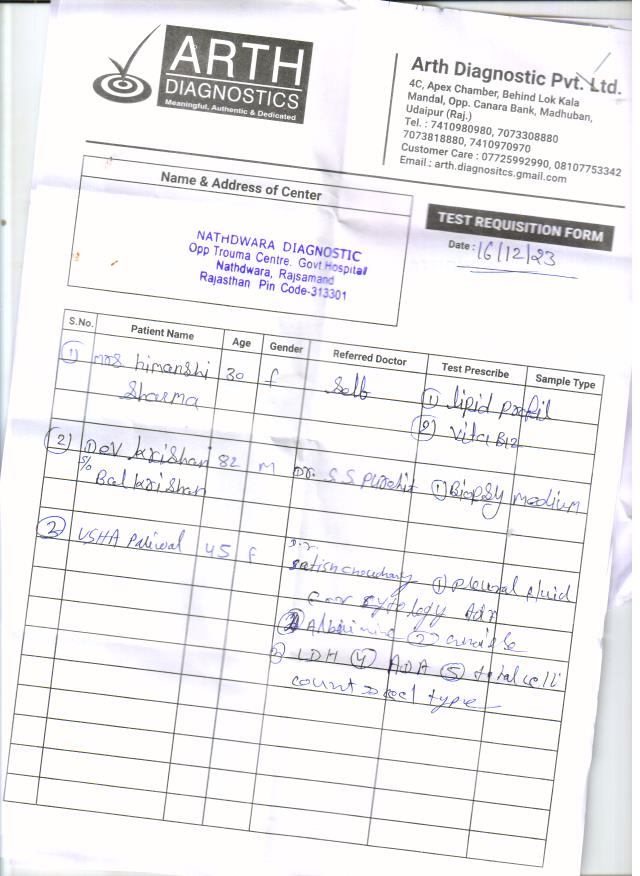 ARTH
DIAGNOSTICS
Meaningful, Authentic & Dedicated
Arth Diagnostic Pvt. Ltd.
4C, Apex Chamber, Behind Lok Kala
Mandal, Opp. Canara Bank, Madhuban,
Udaipur (Raj.)
Tel. : 7410980980, 7073308880
7073818880, 7410970970
Customer Care : 07725992990, 08107753342
Email : arth.diagnositcs.gmail.com
Name & Address of Center
NATHDWARA DIAGNOSTIC
Opp Trouma Centre, Govt Hospital
Nathdwara, Rajsamand
Rajasthan Pin Code-313301
TEST REQUISITION FORM
Date : 16/12/23
S.No. Patient Name Age Gender Referred Doctor Test Prescribe Sample Type
1) mrs himanshi 30 f Self 1) lipid profil
Sharma 2) Vita B12
2) Dev krishan 82 M Dr. S.S Purohit 1) Biopsy medium
S/o
Bal krishan
3 USHA Paliwal 45 F Dr.
Satish choudhary 1) Pleural fluid
For Cytology
2
3 LDH 4) ADA 5) total cell
count cell type